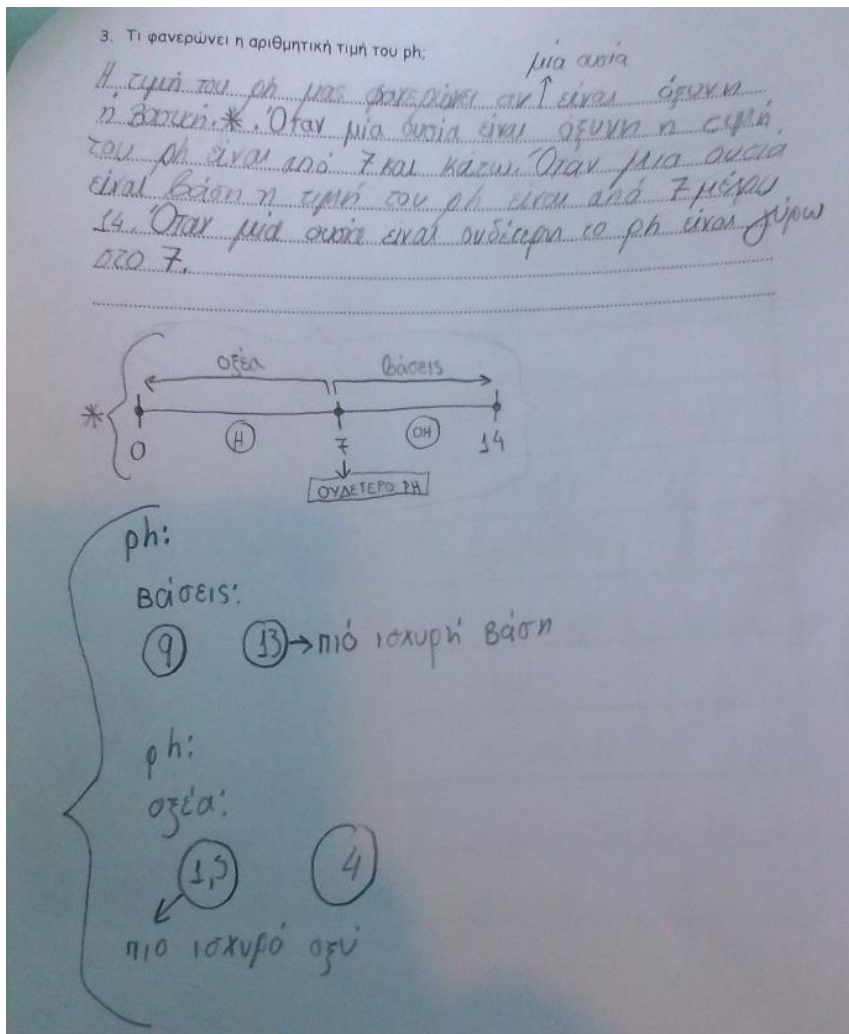 3. Τι φανερώνει η αριθμητική τιμή του ph;
μία ουσία
Η τιμή του ph μας φανερώνει αν ↑ είναι όξυνη
ή βασική.*. Όταν μία ουσία είναι όξυνη η τιμή
του ph είναι από 7 και κάτω. Όταν μια ουσία
είναι βάση η τιμή του ph είναι από 7 μέχρι
14. Όταν μία ουσία είναι ουδέτερη το ph είναι γύρω
στο 7.
οξέα βάσεις
*
0 H 7 OH 14
ΟΥΔΕΤΕΡΟ PH
ph:
Βάσεις:
9 13 → πιό ισχυρή βάση
ph:
οξέα:
1,5 4
πιο ισχυρό οξύ